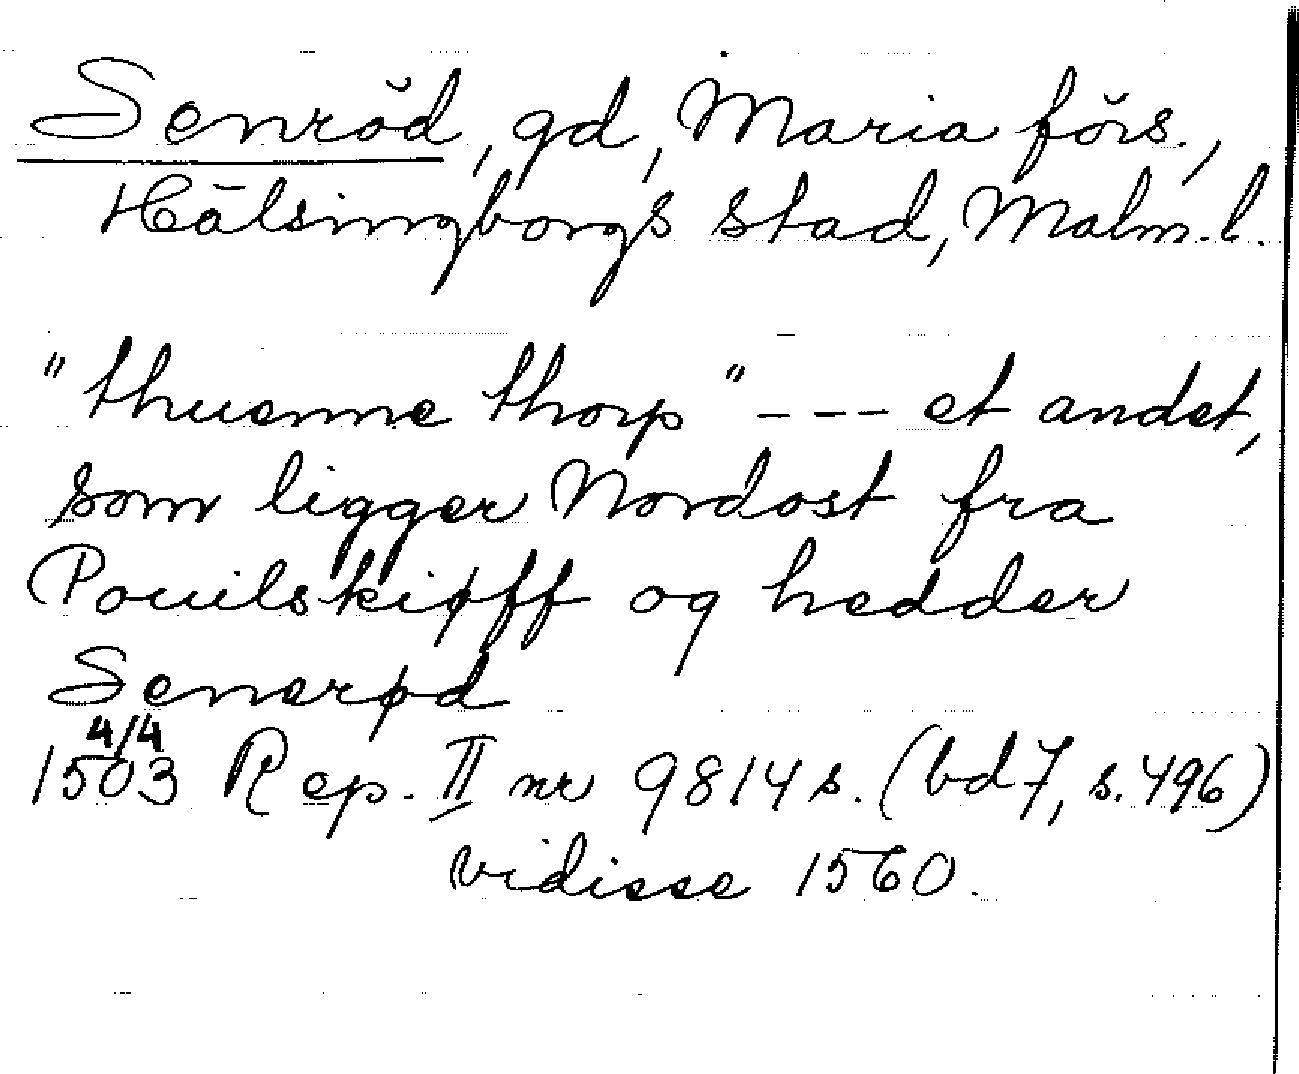 Senröd, gd, Maria förs.,
Hälsingborgs stad, Malm. l.
"thuenne thorp" --- et andet,
som ligger Nordost fra
Pouilskiøff og hedder
Senerød
4/4
1503 Rep. II nr 9814 s. (bd 7, s. 496)
vidisse 1560.